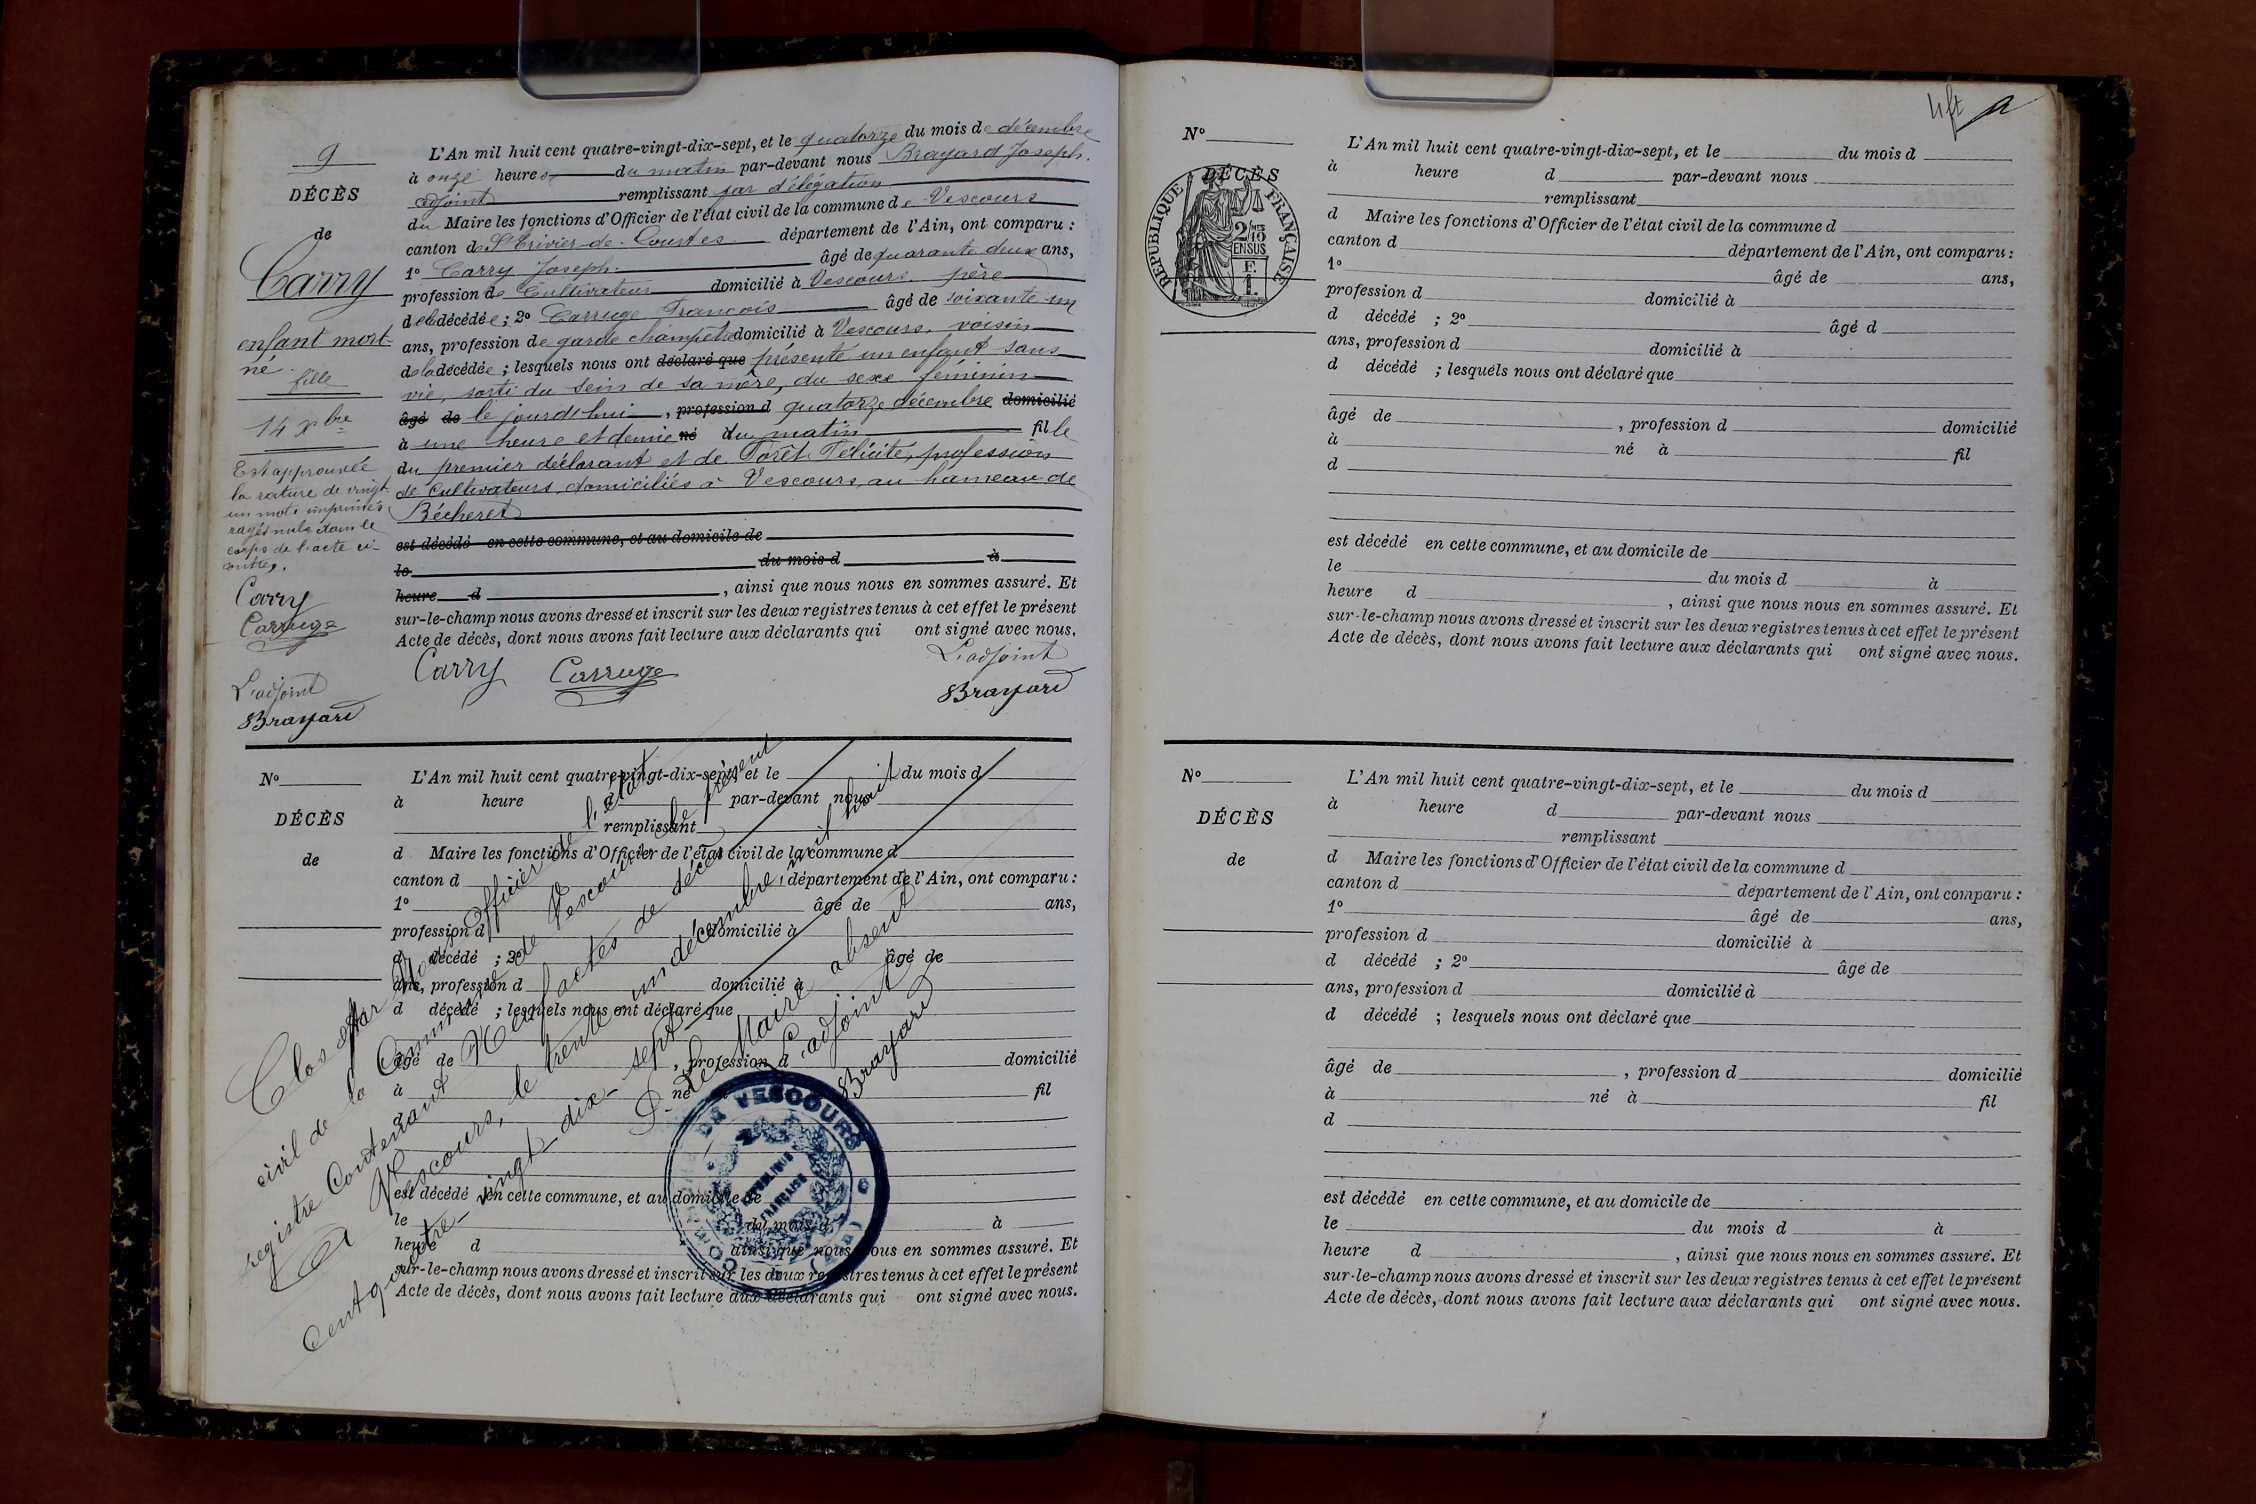 9
DÉCÈS
de
Carry
enfant mort-
né.
fille
14 Xbre
Est approuvée
la rature de vingt-
un mots imprimés
rayés nuls dans le
corps de l'acte ci-
contre.
Carry
Carruge
L'adjoint
Brayard
L'An mil huit cent quatre-vingt-dix-sept, et le quatorze du mois de décembre
à onze heures du matin par-devant nous Brayard Joseph.
adjoint remplissant par délégation
du Maire les fonctions d'Officier de l'état civil de la commune de Vescours
canton de St Trivier-de-Courtes département de l'Ain, ont comparu :
1° Carry Joseph. âgé de quarante deux ans,
profession de Cultivateur domicilié à Vescours, père
de la décédée ; 2° Carruge François âgé de soixante-un
ans, profession de garde champêtre domicilié à Vescours, voisin
de la décédée ; lesquels nous ont déclaré que présenté un enfant sans
vie, sorti du sein de sa mère, du sexe féminin
âgé de le jourd'hui, profession d quatorze décembre domicilié
à une heure et demie né du matin fille
du premier déclarant et de Forêt Félicité, profession
de Cultivateurs, domiciliés à Vescours, au hameau de
Bécheret
est décédé en cette commune, et au domicile de
le du mois d à
heure d , ainsi que nous nous en sommes assuré. Et
sur-le-champ nous avons dressé et inscrit sur les deux registres tenus à cet effet le présent
Acte de décès, dont nous avons fait lecture aux déclarants qui ont signé avec nous.
Carry Carruge L'adjoint
Brayard
N°
DÉCÈS
de
L'An mil huit cent quatre-vingt-dix-sept, et le du mois d
à heure d par-devant nous
remplissant
d Maire les fonctions d'Officier de l'état civil de la commune d
canton d , département de l'Ain, ont comparu :
1° âgé de ans,
profession d domicilié à
d décédé ; 2° âgé de
ans, profession d domicilié à
d décédé ; lesquels nous ont déclaré que
âgé de , profession d domicilié
à né à fil
d
est décédé en cette commune, et au domicile de
le du mois d à
heure d ainsi que nous nous en sommes assuré. Et
sur-le-champ nous avons dressé et inscrit sur les deux registres tenus à cet effet le présent
Acte de décès, dont nous avons fait lecture aux déclarants qui ont signé avec nous.
Clos par Nous Officier de l'état
civil de la Commune de Vescours le présent
registre Contenant Neuf actes de décès
A Vescours, le trente-un décembre, mil huit
cent quatre-vingt-dix-sept
P. le Maire absent
L'adjoint
Brayard
COMMUNE DE VESCOURS
(AIN)
RÉPUBLIQUE
FRANÇAISE
N°
DÉCÈS
RÉPUBLIQUE FRANÇAISE
2/10
EN SUS
F.
1.
L'An mil huit cent quatre-vingt-dix-sept, et le du mois d
à heure d par-devant nous
remplissant
d Maire les fonctions d'Officier de l'état civil de la commune d
canton d département de l'Ain, ont comparu :
1° âgé de ans,
profession d domicilié à
d décédé ; 2° âgé d
ans, profession d domicilié à
d décédé ; lesquels nous ont déclaré que
âgé de , profession d domicilié
à né à fil
d
est décédé en cette commune, et au domicile de
le du mois d à
heure d , ainsi que nous nous en sommes assuré. Et
sur-le-champ nous avons dressé et inscrit sur les deux registres tenus à cet effet le présent
Acte de décès, dont nous avons fait lecture aux déclarants qui ont signé avec nous.
N°
DÉCÈS
de
L'An mil huit cent quatre-vingt-dix-sept, et le du mois d
à heure d par-devant nous
remplissant
d Maire les fonctions d'Officier de l'état civil de la commune d
canton d département de l'Ain, ont comparu :
1° âgé de ans,
profession d domicilié à
d décédé ; 2° âge de
ans, profession d domicilié à
d décédé ; lesquels nous ont déclaré que
âgé de , profession d domicilié
à né à fil
d
est décédé en cette commune, et au domicile de
le du mois d à
heure d , ainsi que nous nous en sommes assuré. Et
sur-le-champ nous avons dressé et inscrit sur les deux registres tenus à cet effet le présent
Acte de décès, dont nous avons fait lecture aux déclarants qui ont signé avec nous.